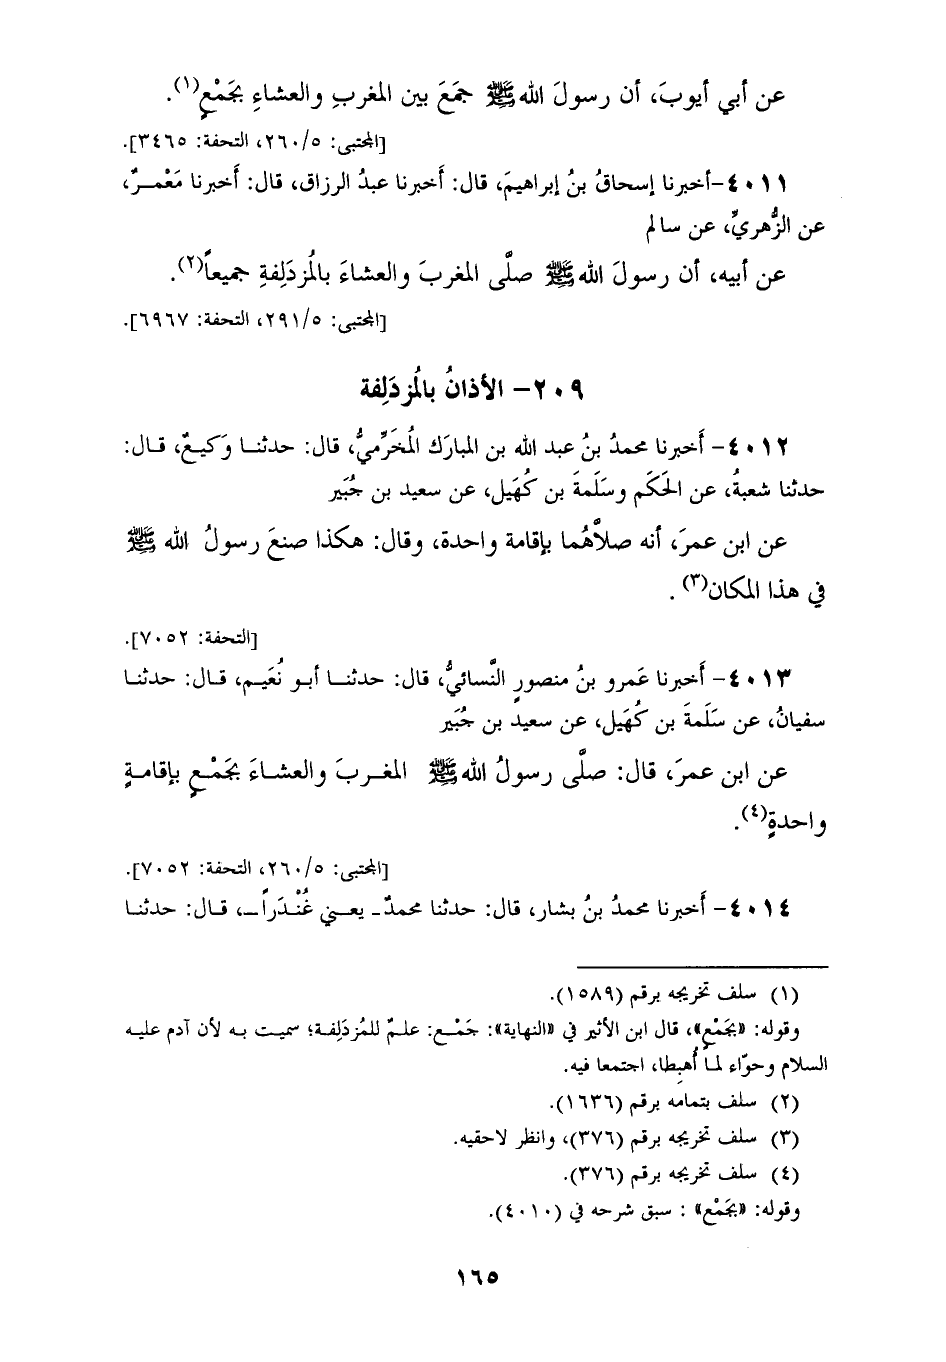 عن أبي أيوبَ، أن رسولَ الله ﷺ جمَعَ بين المغربِ والعشاءِ بجَمْعٍ(١).
[المجتبى: ٢٦٠/٥، التحفة: ٣٤٦٥].
٤٠١١-أخبرنا إسحاقُ بنُ إبراهيمَ، قال: أَخبرنا عبدُ الرزاق، قال: أَخبرنا مَعْمرٌ،
عن الزُّهريِّ، عن سالم
عن أبيه، أن رسولَ الله ﷺ صلَّى المغربَ والعشاءَ بالمُزدَلِفةِ جميعاً(٢).
[المجتبى: ٢٩١/٥، التحفة: ٦٩٦٧].
٢٠٩- الأذانُ بالمُزدَلِفة
٤٠١٢- أَخبرنا محمدُ بنُ عبد الله بن المبارك المُخَرِّميُّ، قال: حدثنا وَكيعٌ، قال:
حدثنا شعبةُ، عن الحَكَم وسَلَمةَ بن كُهَيل، عن سعيد بن جُبَير
عن ابن عمرَ، أنه صلاَّهُما بإقامة واحدة، وقال: هكذا صنعَ رسولُ الله ﷺ
في هذا المكان(٣) .
[التحفة: ٧٠٥٢].
٤٠١٣- أَخبرنا عَمرو بنُ منصورٍ النَّسائيُّ، قال: حدثنا أبو نُعَيم، قال: حدثنا
سفيانُ، عن سَلَمةَ بن كُهَيل، عن سعيد بن جُبَير
عن ابن عمرَ، قال: صلَّى رسولُ الله ﷺ المغربَ والعشاءَ بجَمْعٍ بإقامةٍ
واحدةٍ(٤).
[المجتبى: ٢٦٠/٥، التحفة: ٧٠٥٢].
٤٠١٤- أَخبرنا محمدُ بنُ بشار، قال: حدثنا محمدٌ- يعني غُنْدَراً-، قال: حدثنا
(١) سلف تخريجه برقم (١٥٨٩).
وقوله: «بجَمْع»، قال ابن الأثير في «النهاية»: جَمْع: علمٌ للمُزدَلِفة؛ سميت به لأن آدم عليه
السلام وحوّاء لمـَّا أُهبِطا، اجتمعا فيه.
(٢) سلف بتمامه برقم (١٦٣٦).
(٣) سلف تخريجه برقم (٣٧٦)، وانظر لاحقيه.
(٤) سلف تخريجه برقم (٣٧٦).
وقوله: «بجَمْع» : سبق شرحه في (٤٠١٠).
١٦٥